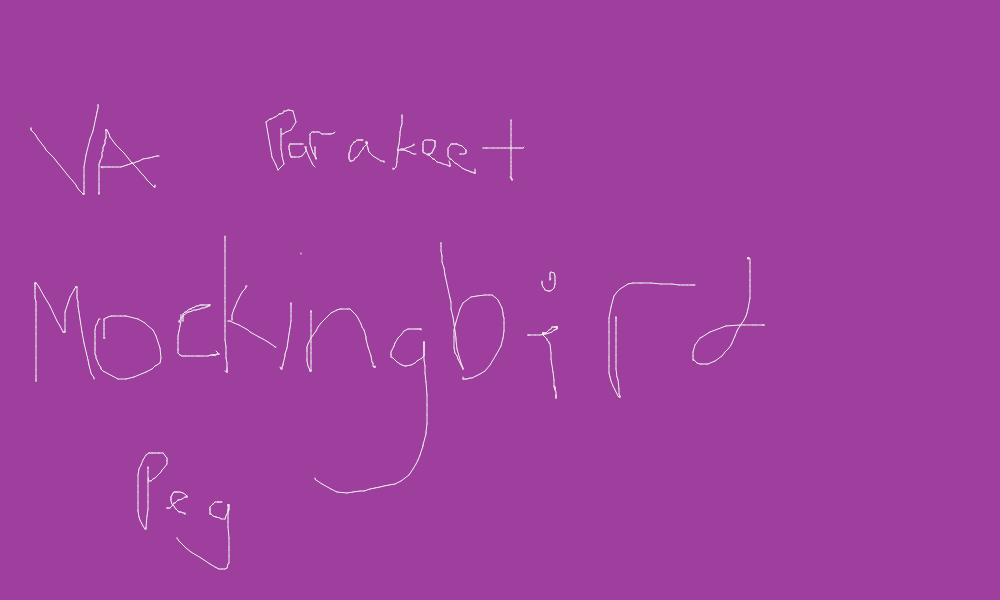 VA Parakeet
Mockingbird
Peg